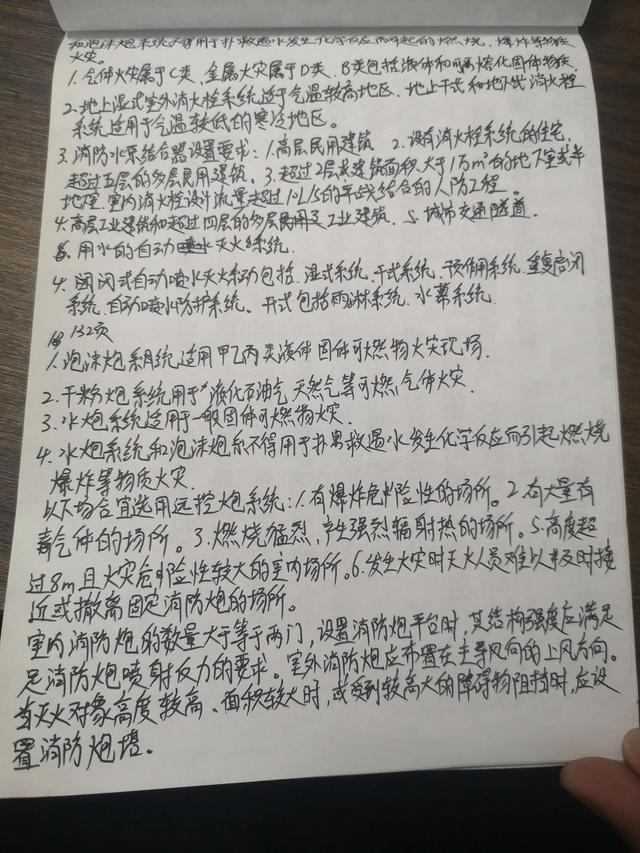 和泡沫炮系统不得用于扑救遇水发生化学反应而引起的燃烧、爆炸等物质
火灾。
1.气体火灾属于C类、金属火灾属于D类、B类包括液体和可熔化固体物质
2.地上湿式室外消火栓系统适于气温较高地区、地上干式和地下式消火栓
系统适用于气温较低的寒冷地区。
3.消防水泵结合器设置要求：1.高层民用建筑 2.设有消火栓系统的住宅,
超过五层的多层民用建筑、3.超过2层或建筑面积大于1万m²的地下室或半
地下室、室内消火栓设计流量超过10L/S的平战结合的人防工程。
4.高层工业建筑和超过四层的多层工业建筑、5.城市交通隧道
6.用水的自动喷水灭火系统.
4.闭式自动喷水灭火系统包括、湿式系统、干式系统、预作用系统、重复启闭
系统、自动喷水防护系统。开式包括雨淋系统、水幕系统.
132页
1.泡沫炮系统适用甲乙丙类液体固体可燃物火灾现场.
2.干粉炮系统用于液化石油气、天然气等可燃气体火灾.
3.水炮系统适用于一般固体可燃物火灾.
4.水炮系统和泡沫炮系不得用于扑救遇水发生化学反应而引起燃烧
爆炸等物质火灾.
以下场合宜选用远控炮系统：1.有爆炸危险性的场所。2.有大量有
毒气体的场所。3.燃烧猛烈，产生强烈辐射热的场所。5.高度超
过8m且火灾危险性较大的室内场所。6.发生火灾时灭火人员难以及时接
近或撤离固定消防炮的场所。
室内消防炮的数量大于等于两门，设置消防炮平台时，其结构强度应满足
足消防炮喷射反力的要求。室外消防炮应布置在主导风向的上风方向。
当灭火对象高度较高、面积较大时，或受到较高大的障碍物阻挡时，应设
置消防炮塔。